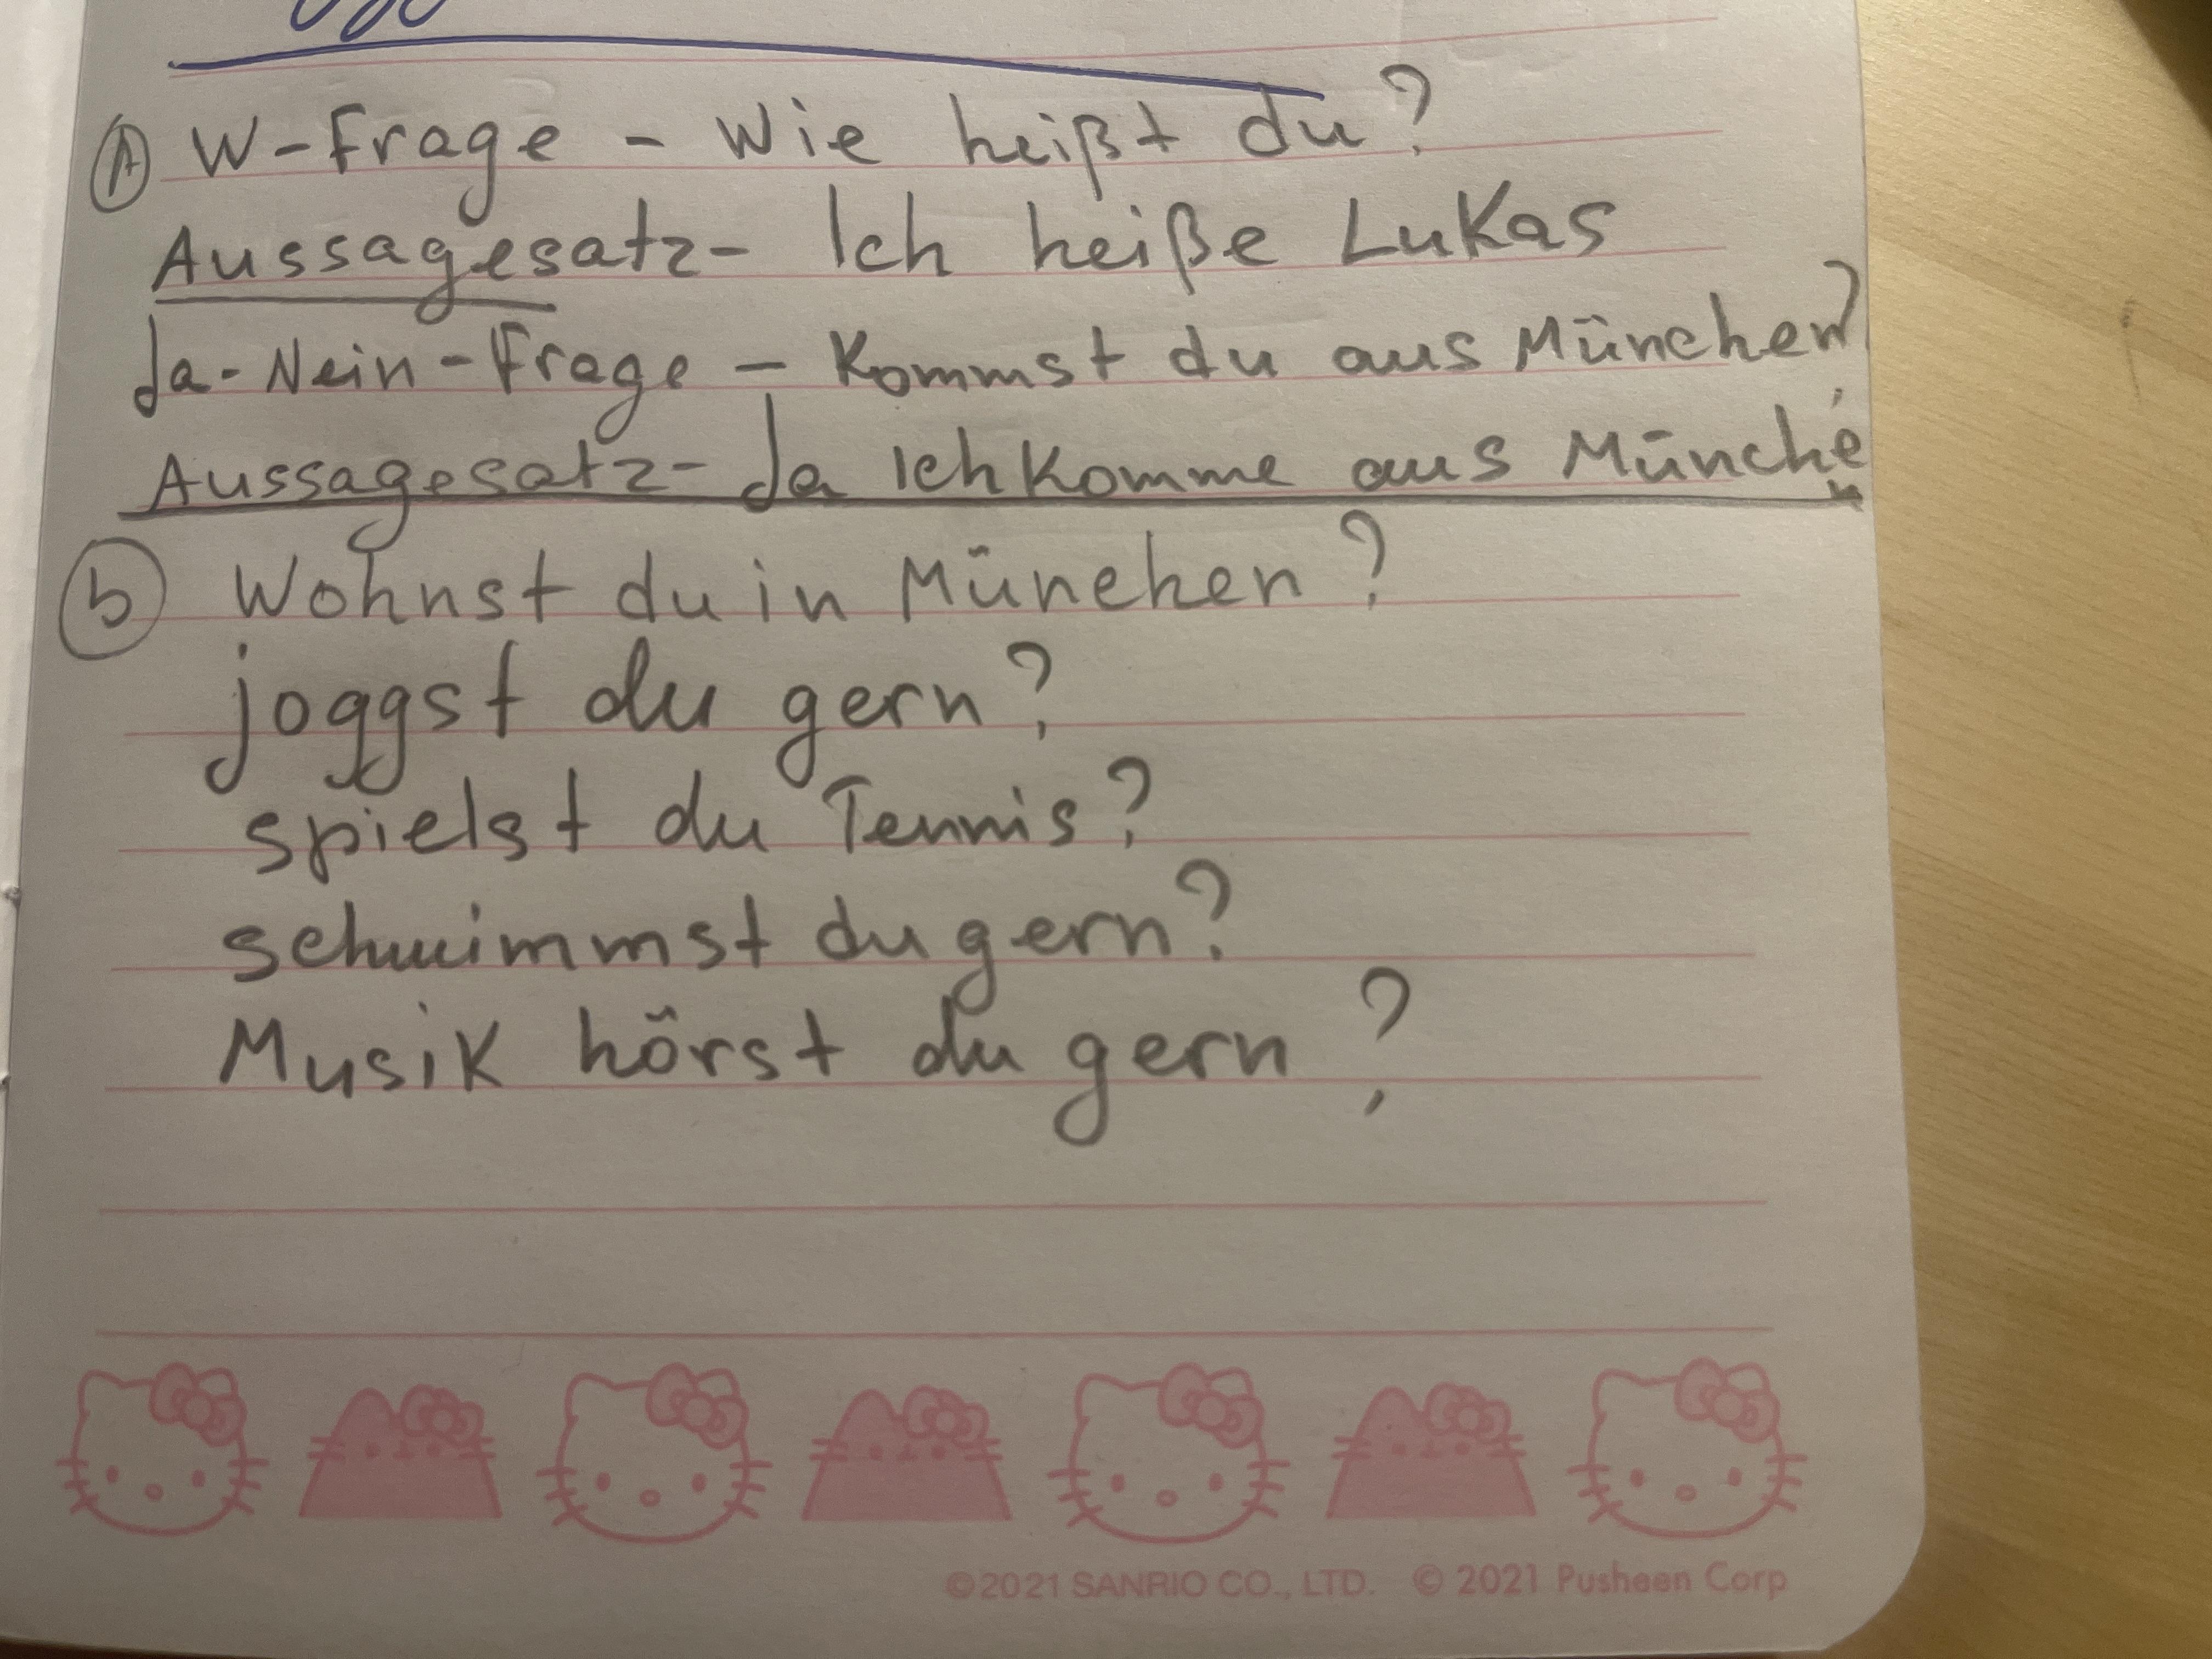 A W-Frage - Wie heißt du?
Aussagesatz- Ich heiße Lukas
Ja-Nein-Frage - Kommst du aus München?
Aussagesatz- Ja Ich komme aus München
b Wohnst du in München?
joggst du gern?
spielst du Tennis?
schwimmst du gern?
Musik hörst du gern?
©2021 SANRIO CO., LTD. © 2021 Pusheen Corp